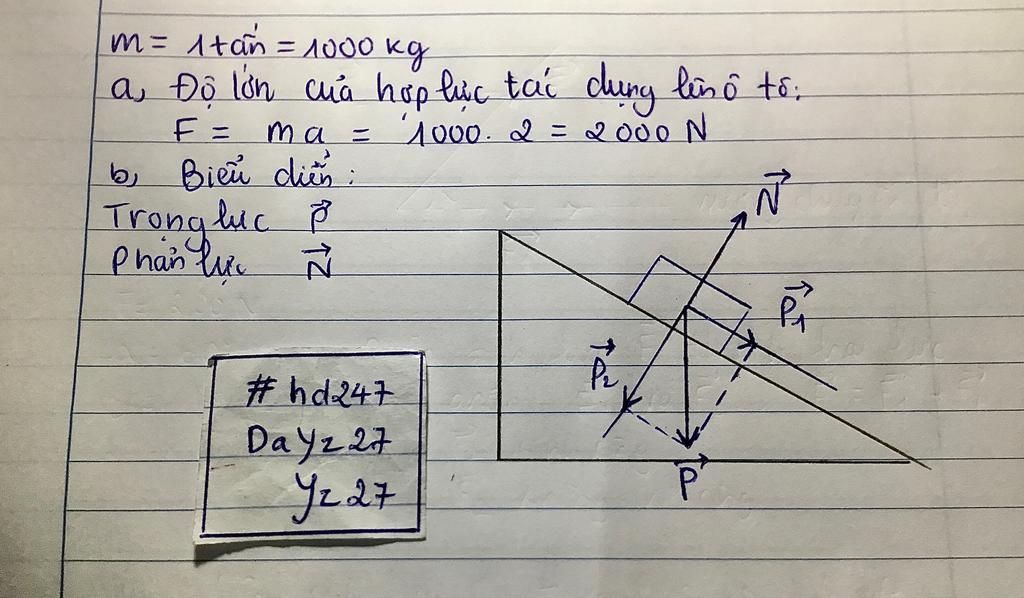 m = 1 tấn = 1000 kg
a, Độ lớn của hợp lực tác dụng lên ô tô:
F = ma = 1000. 2 = 2000 N
b, Biểu diễn:
Trọng lực P⃗
Phản lực N⃗
N⃗
P⃗1
P⃗2
P⃗
# hd247
DaYz27
Yz27